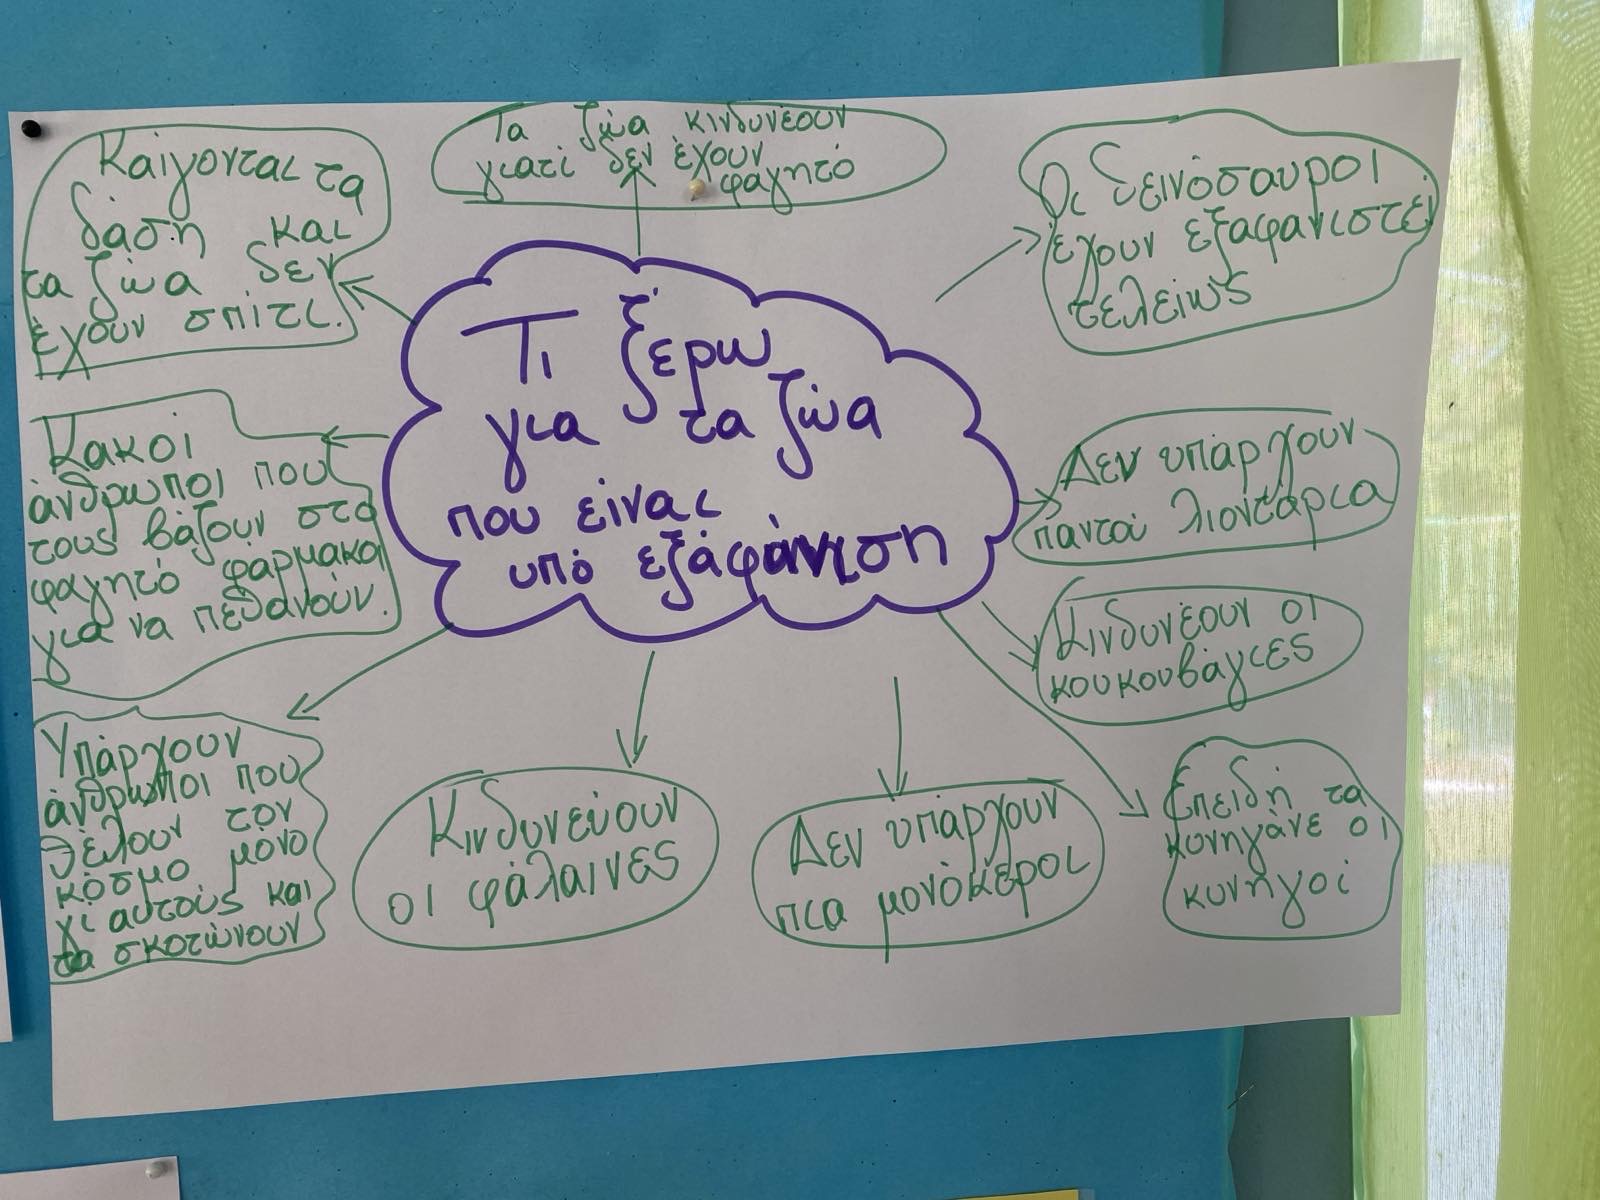 Τι ξέρω
για τα ζώα
που είναι
υπό εξάφάνιση
Τα ζώα κινδυνέουν
γιατί δεν έχουν
φαγητό
Οι δεινόσαυροι
έχουν εξαφανιστεί
τελείως
Δεν υπάρχουν
παντού λιοντάρια
Κινδυνέουν οι
κουκουβάγιες
Επειδή τα
κυνηγάνε οι
κυνηγοί
Δεν υπάρχουν
πια μονόκεροι
Κινδυνεύουν
οι φάλαινες
Υπάρχουν
άνθρωποι που
θέλουν τον
κόσμο μόνο
γι αυτούς και
τα σκοτώνουν
Κακοί
άνθρωποι που
τους βάζουν στο
φαγητό φάρμακα
για να πεθάνουν.
Καίγονται τα
δάση και
τα ζώα δεν
έχουν σπίτι.